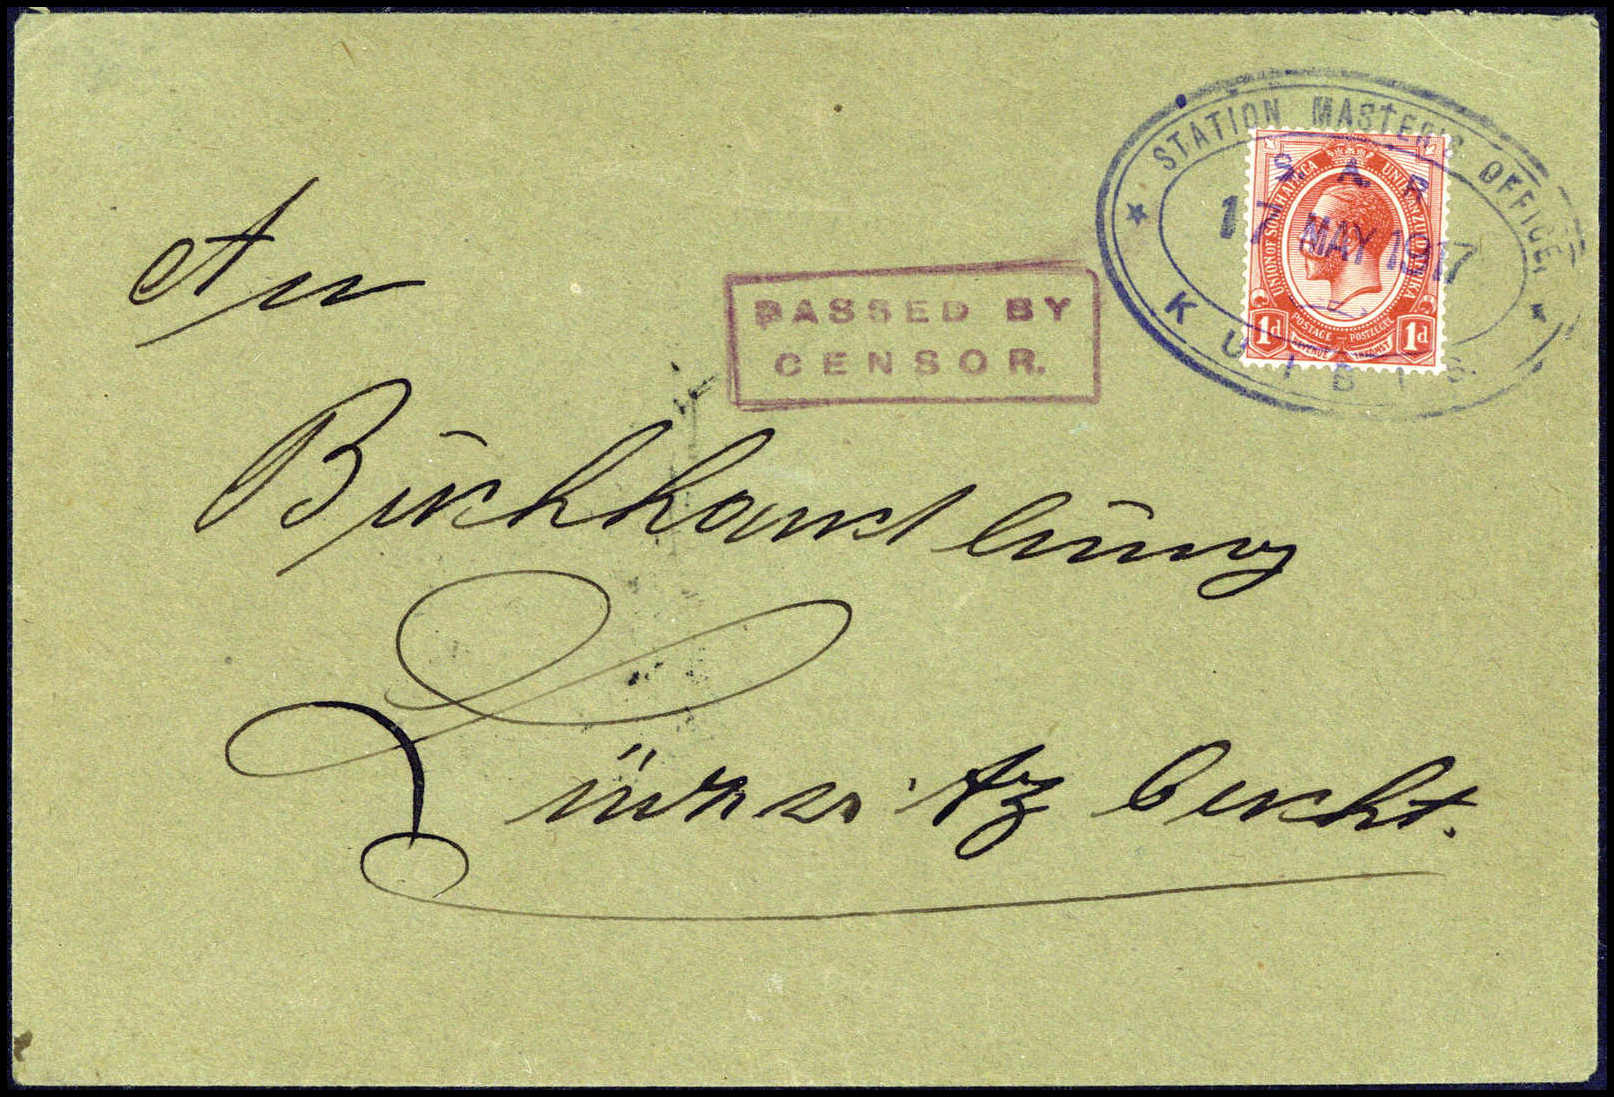 STATION MASTER'S OFFICE.
S. A. R
17 MAY 1917
KUIBIS
UNION OF SOUTH AFRICA UNIE VAN ZUID AFRIKA
POSTAGE — POSTZEGEL
REVENUE INKOMST
1d 1d
PASSED BY
CENSOR.
An
Buchhandlung
Lüderitzbucht.